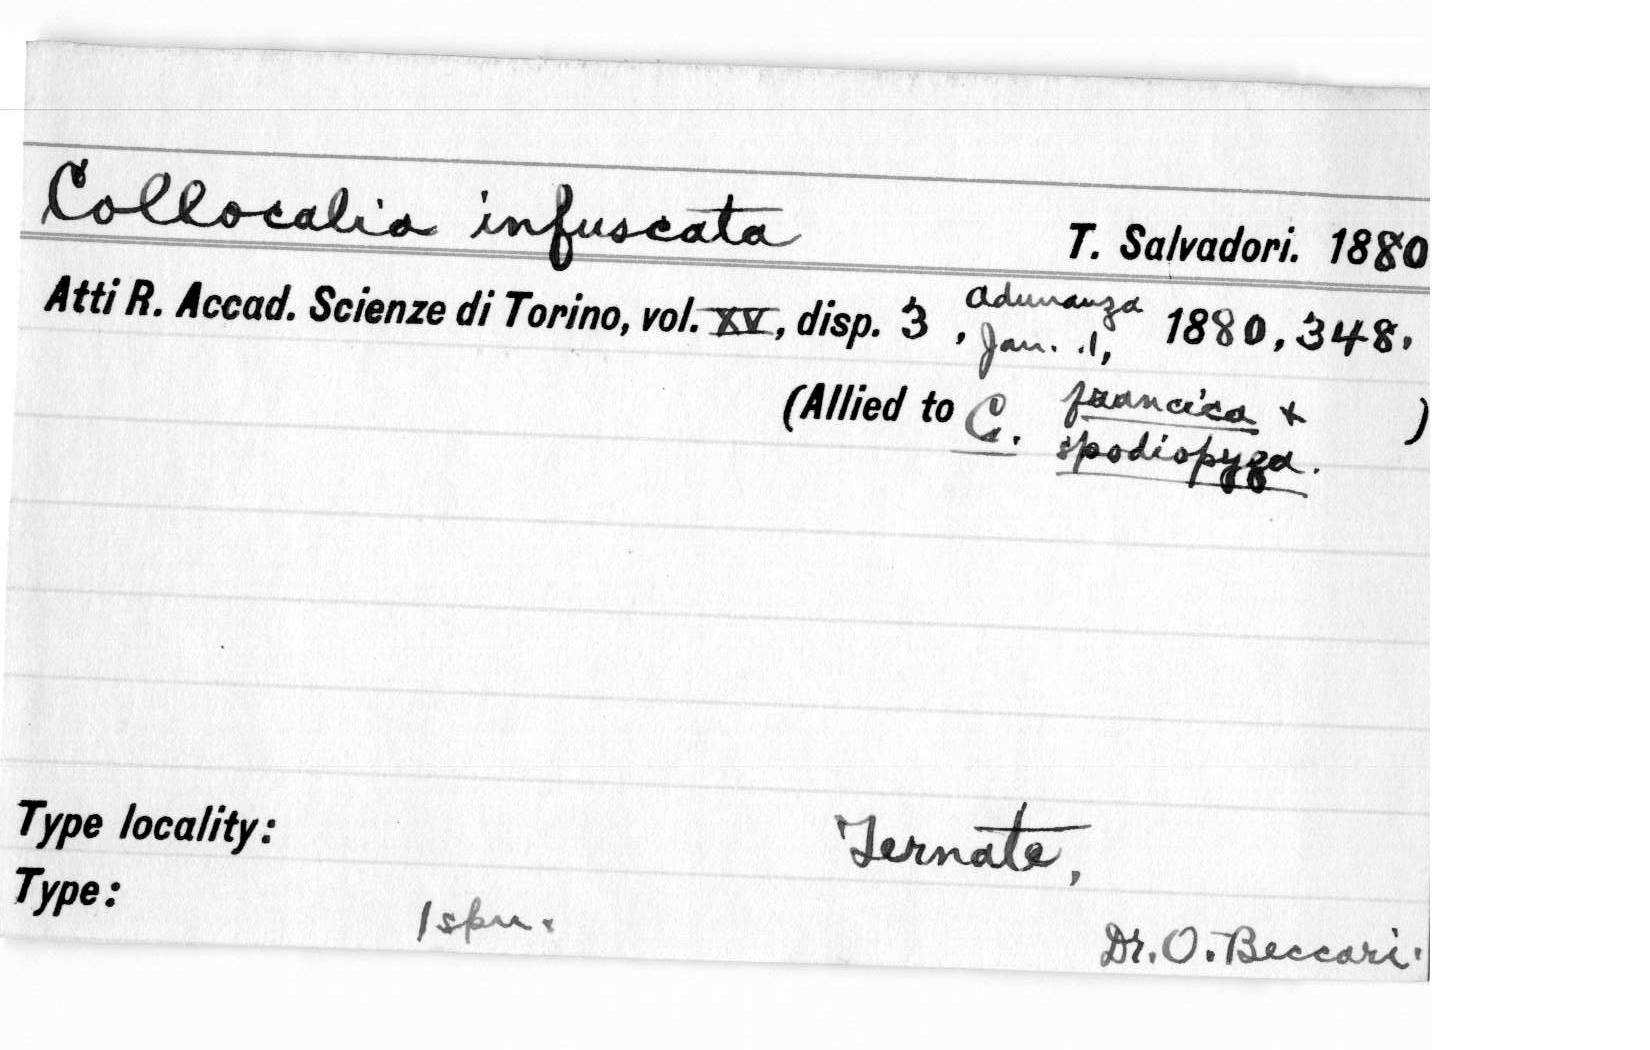 Collocalia infuscata T. Salvadori. 1880
Atti R. Accad. Scienze di Torino, vol. XV, disp. 3, Adunanza Jan. 11, 1880, 348.
(Allied to C. francica + )
spodiopyga.
Type locality: Ternate,
Type: 1 spm. Dr. O. Beccari.